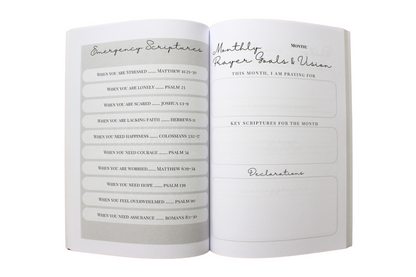 Emergency Scriptures
WHEN YOU ARE STRESSED ...... MATTHEW 11:25-30
WHEN YOU ARE LONELY ...... PSALM 23
WHEN YOU ARE SCARED ...... JOSHUA 1:1-9
WHEN YOU ARE LACKING FAITH ...... HEBREWS 11
WHEN YOU NEED HAPPINESS ...... COLOSSIANS 3:12-17
WHEN YOU NEED COURAGE ...... PSALM 34
WHEN YOU ARE WORRIED ...... MATTHEW 6:19-34
WHEN YOU NEED HOPE ...... PSALM 130
WHEN YOU FEEL OVERWHELMED ...... PSALM 61
WHEN YOU NEED ASSURANCE ...... ROMANS 8:1-30
Monthly
MONTH:
Prayer Goals & Vision
THIS MONTH, I AM PRAYING FOR
KEY SCRIPTURES FOR THE MONTH
Declarations